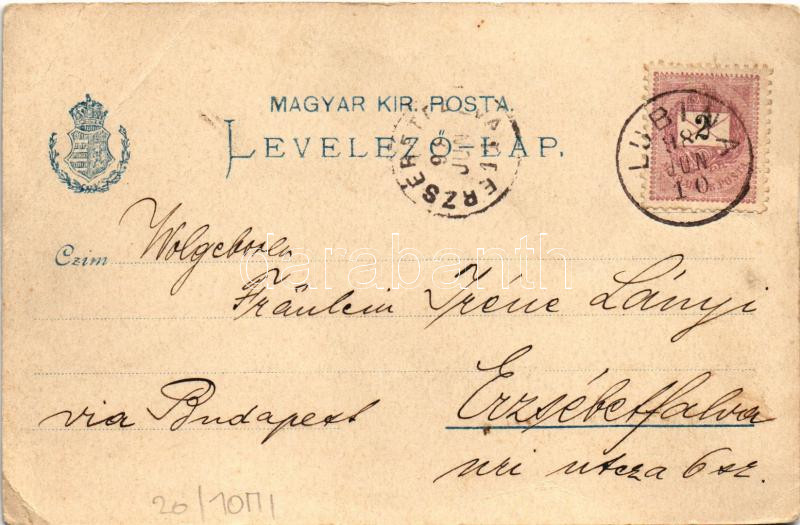 MAGYAR KIR. POSTA.
LEVELEZŐ-LAP.
LUBINA
98
JUN
10
2
ERZSÉBETFALVA
JUN
Czim
Wolgeboren
Fräulein Irene Lányi
via Budapest
Erzsébetfalva
uri utcza 6 sz.
darabanth
20/10П1